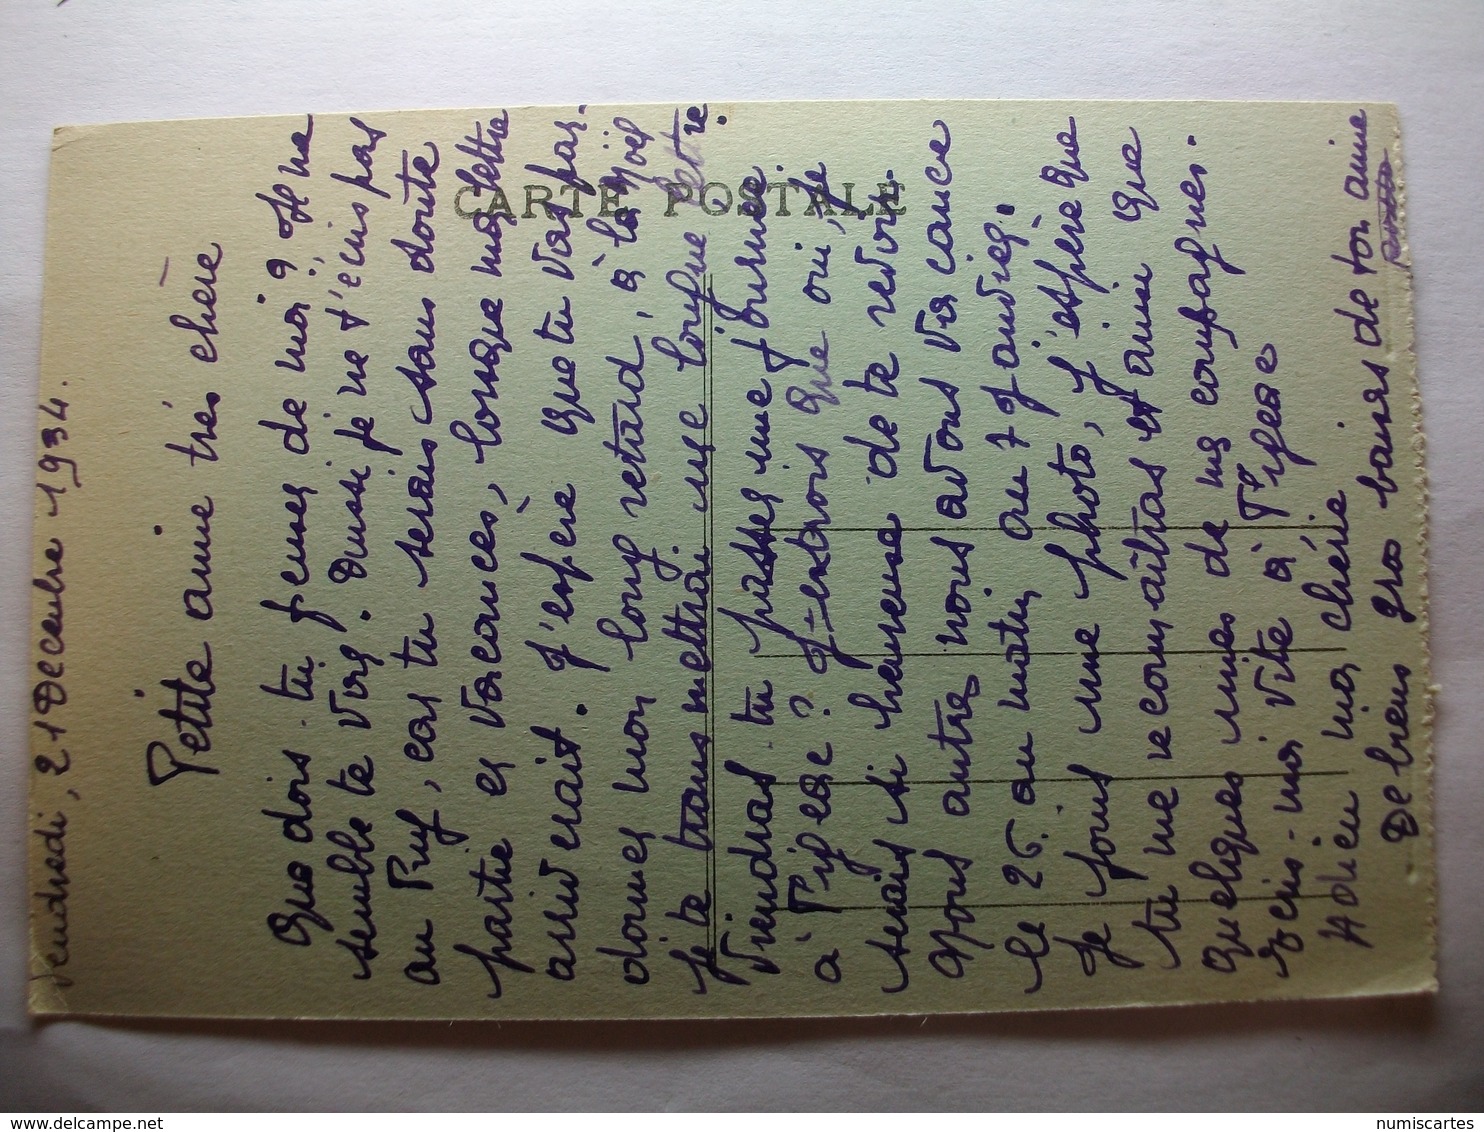 Vendredi, 21 Decembre 1934.
Petite amie très chère
Que dois-tu penser de moi? Je ne
semble te voir. Aussi je ne t'ecris pas
au Puy, car tu serais sans doute
partie en vacances, lorsque ma lettre
arriverait. J'espère que tu vas par-
donner mon long retard, à la Noël
je te transmettrai une longue lettre.
CARTE POSTALE
Viendras-tu passer une journée
à Pigea? J'entrois que oui, je
serais si heureuse de te revoir.
Nous autres nous avons vacance
le 26 au matin au 7 janvier.
Je jous une photo, j'espère que
tu me reconnaîtras et ainsi que
quelques unes de mes compagnes.
Ecris-moi vite à Pigea
Adieu ma chérie
De biens gros baisers de ton amie
numiscartes
http://www.delcampe.net